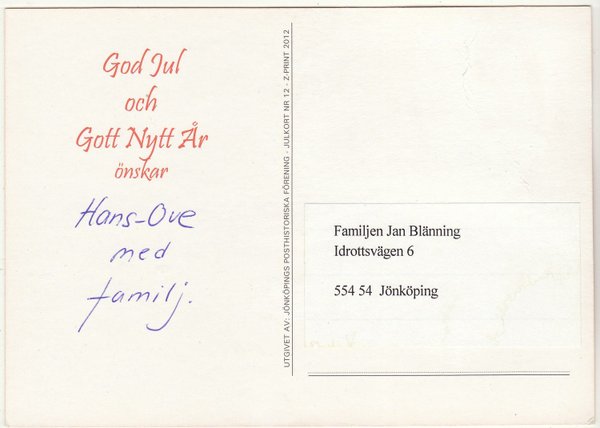 God Jul
och
Gott Nytt År
önskar
Hans-Ove
med
familj.
UTGIVET AV: JÖNKÖPINGS POSTHISTORISKA FÖRENING - JULKORT NR 12 - Z-PRINT 2012
Familjen Jan Blänning
Idrottsvägen 6
554 54 Jönköping